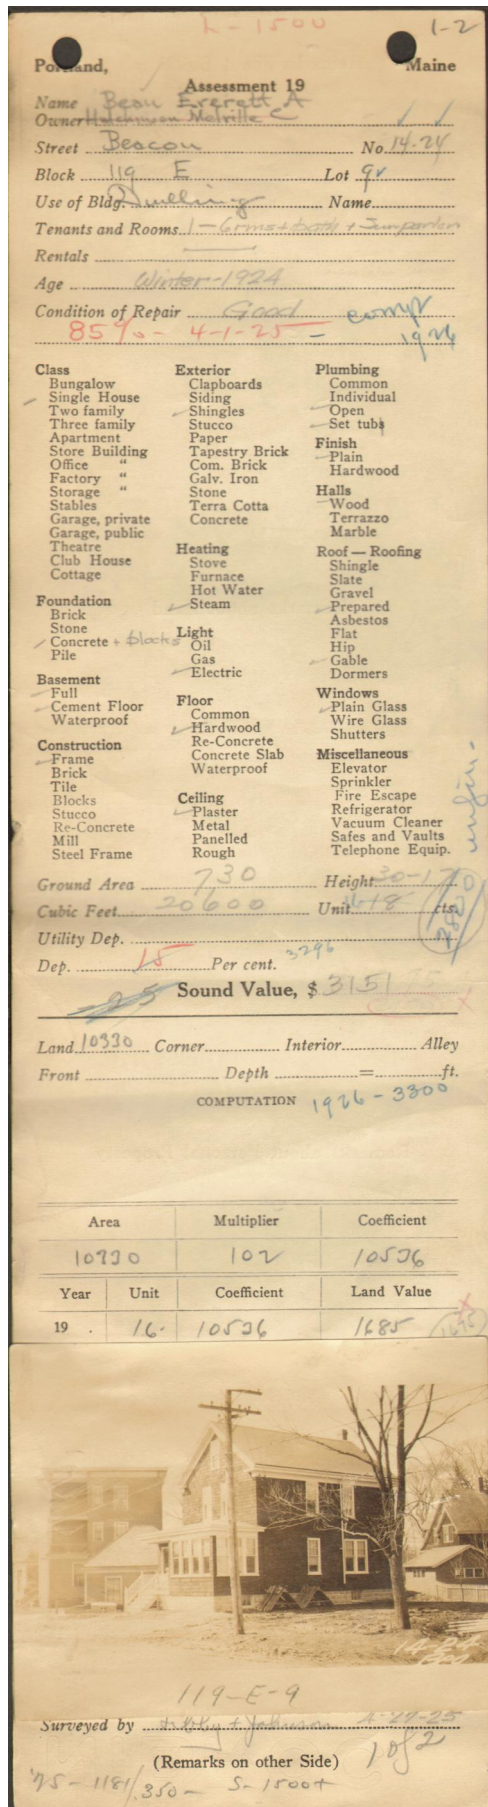 L-1500
1-2
Portland, Maine
Assessment 19
Name Bean Everett A
Owner Hutchinson Melville C
Street Beacon No. 14-24
Block 119 E Lot 9
Use of Bldg. Dwelling Name
Tenants and Rooms 1-6 rms + bath + Sun parlor
Rentals
Age Winter-1924
Condition of Repair Good compt
85% - 4-1-25 - 1926
Class
Bungalow
Single House
Two family
Three family
Apartment
Store Building
Office "
Factory "
Storage "
Stables
Garage, private
Garage, public
Theatre
Club House
Cottage
Foundation
Brick
Stone
Concrete + blocks
Pile
Basement
Full
Cement Floor
Waterproof
Construction
Frame
Brick
Tile
Blocks
Stucco
Re-Concrete
Mill
Steel Frame
Exterior
Clapboards
Siding
Shingles
Stucco
Paper
Tapestry Brick
Com. Brick
Galv. Iron
Stone
Terra Cotta
Concrete
Heating
Stove
Furnace
Hot Water
Steam
Light
Oil
Gas
Electric
Floor
Common
Hardwood
Re-Concrete
Concrete Slab
Waterproof
Ceiling
Plaster
Metal
Panelled
Rough
Plumbing
Common
Individual
Open
Set tubs
Finish
Plain
Hardwood
Halls
Wood
Terrazzo
Marble
Roof — Roofing
Shingle
Slate
Gravel
Prepared
Asbestos
Flat
Hip
Gable
Dormers
Windows
Plain Glass
Wire Glass
Shutters
Miscellaneous
Elevator
Sprinkler
Fire Escape
Refrigerator
Vacuum Cleaner
Safes and Vaults
Telephone Equip.
unfin.
2800
Ground Area 730 Height 30-17
Cubic Feet 20600 Unit 18 cts.
Utility Dep.
Dep. 15 Per cent. 3296
-25 Sound Value, $ 3151
Land 10330 Corner Interior Alley
Front Depth = ft.
COMPUTATION 1926-3300
Area Multiplier Coefficient
10330 102 10536
Year Unit Coefficient Land Value
19 . 16. 10536 1685
14-24
119-E-9
Surveyed by
(Remarks on other Side) 1 of 2
'75-1181/350- S-1500+